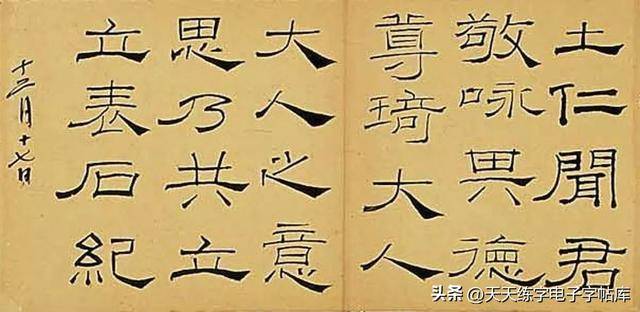 土仁聞君
敬咏其德
尊琦大人
大人之意
思乃共立
立表石紀
十二月十七日
头条 @天天练字电子字帖库